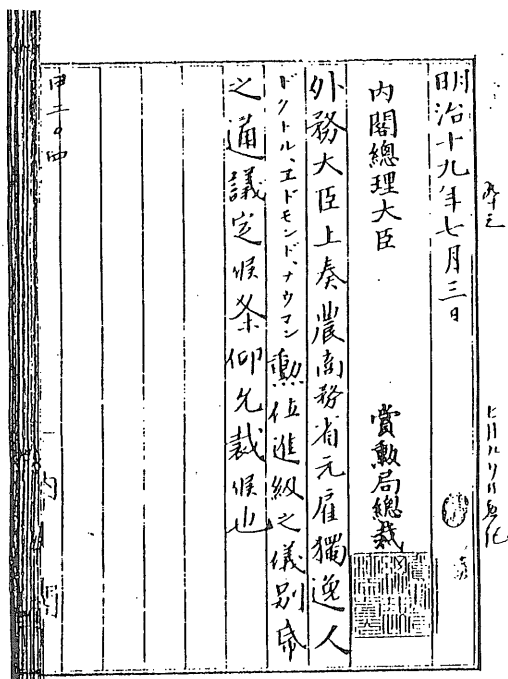 明治十九年七月三日
内閣總理大臣
賞勲局總裁
外務大臣上奏農商務省元雇獨逸人
ドクトル、エドモンド、ナウマン勲位進級之儀別帋
之通議定候条仰允裁候也
甲二〇四
内閣